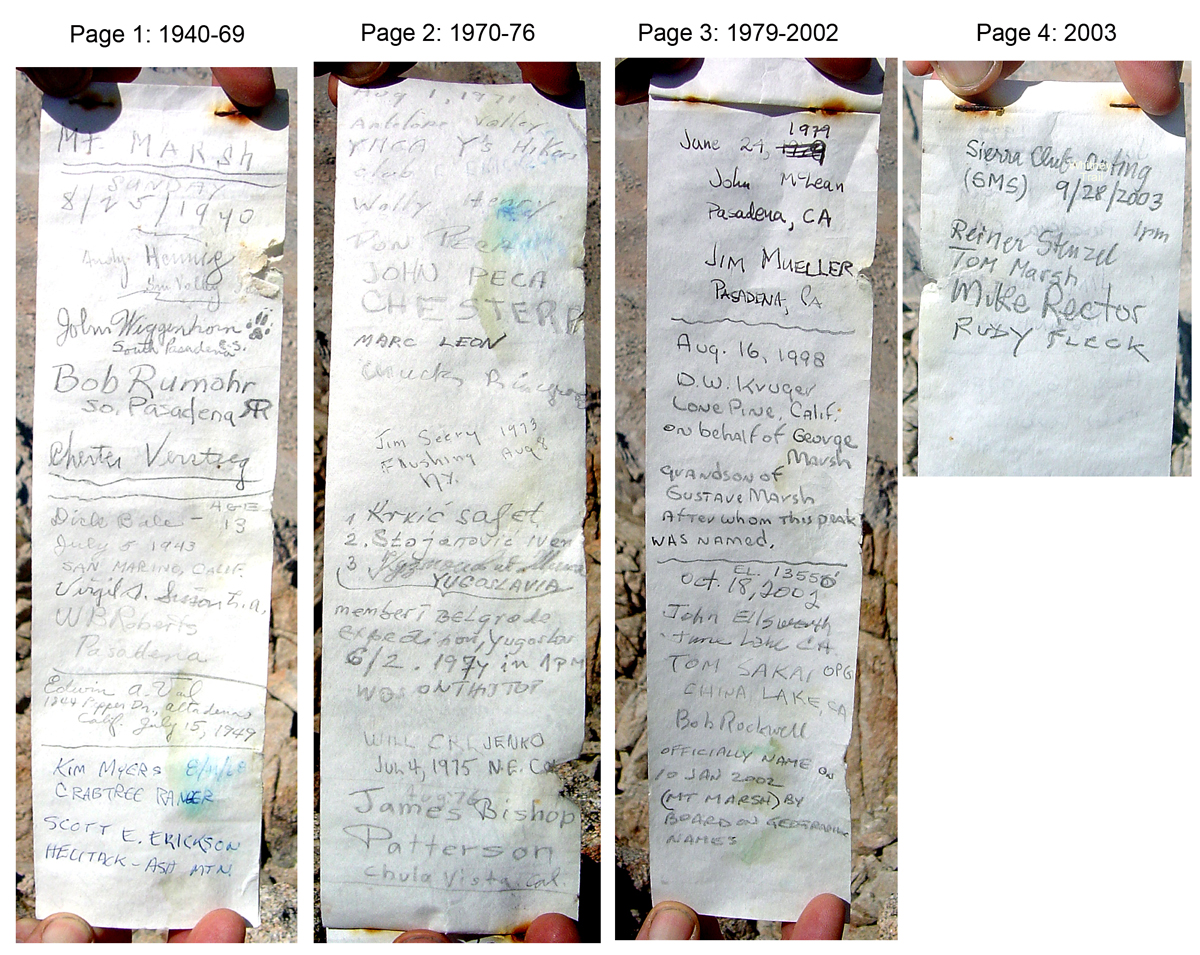 Page 1: 1940-69
Mt MARSH
SUNDAY
8/25/1940
Andy Hennig
Sun Valley
John Wiggenhorn
South Pasadena
Bob Rumohr
So. Pasadena RR
Chester Versteeg
AGE
Dick Bale - 13
July 5 1943
SAN MARINO, CALIF.
Virgil S. Sisson L.A.
W B Roberts
Pasadena
Edwin A. Val
1244 Pepper Dr., Altadena
Calif. July 15, 1949
KIM MYERS
CRABTREE RANGER
SCOTT E. ERICKSON
HELITACK - ASH MTN.
Page 2: 1970-76
Aug 1, 1971
Antelope Valley
YMCA Y's Hikers
club
Wally Henry
DON PECA
JOHN PECA
CHESTER
MARC LEON
Chuck
Jim Seery 1973
Flushing Aug 8
NY.
1 Krkić safet
2. Stojanovic Iven
3
YUGOSLAVIA
memberi BELgrade
expedition, Yugoslav
6/2. 1974 in 1PM
WAS ON THIS TOP
WILL
Jun 4, 1975 N.E.
Aug 76
James Bishop
Patterson
Chula Vista Cal.
Page 3: 1979-2002
1979
June 24,
John McLean
Pasadena, CA
JIM MUELLER
PASADENA, CA
Aug. 16, 1998
D.W. Kruger
Lone Pine, Calif.
on behalf of George
Marsh
grandson of
Gustave Marsh
After whom this peak
was named.
EL. 13550'
Oct. 18, 2002
John Ellsworth
June Lake CA.
TOM SAKAI OPG
CHINA LAKE, CA
Bob Rockwell
OFFICIALLY NAME ON
10 JAN 2002
(MT MARSH) BY
BOARD ON GEOGRAPHIC
NAMES
Page 4: 2003
Sierra Club Outing
(SMS) 9/28/2003
1pm
Reiner Stenzel
Tom Marsh
Mike Rector
RUDY FLECK